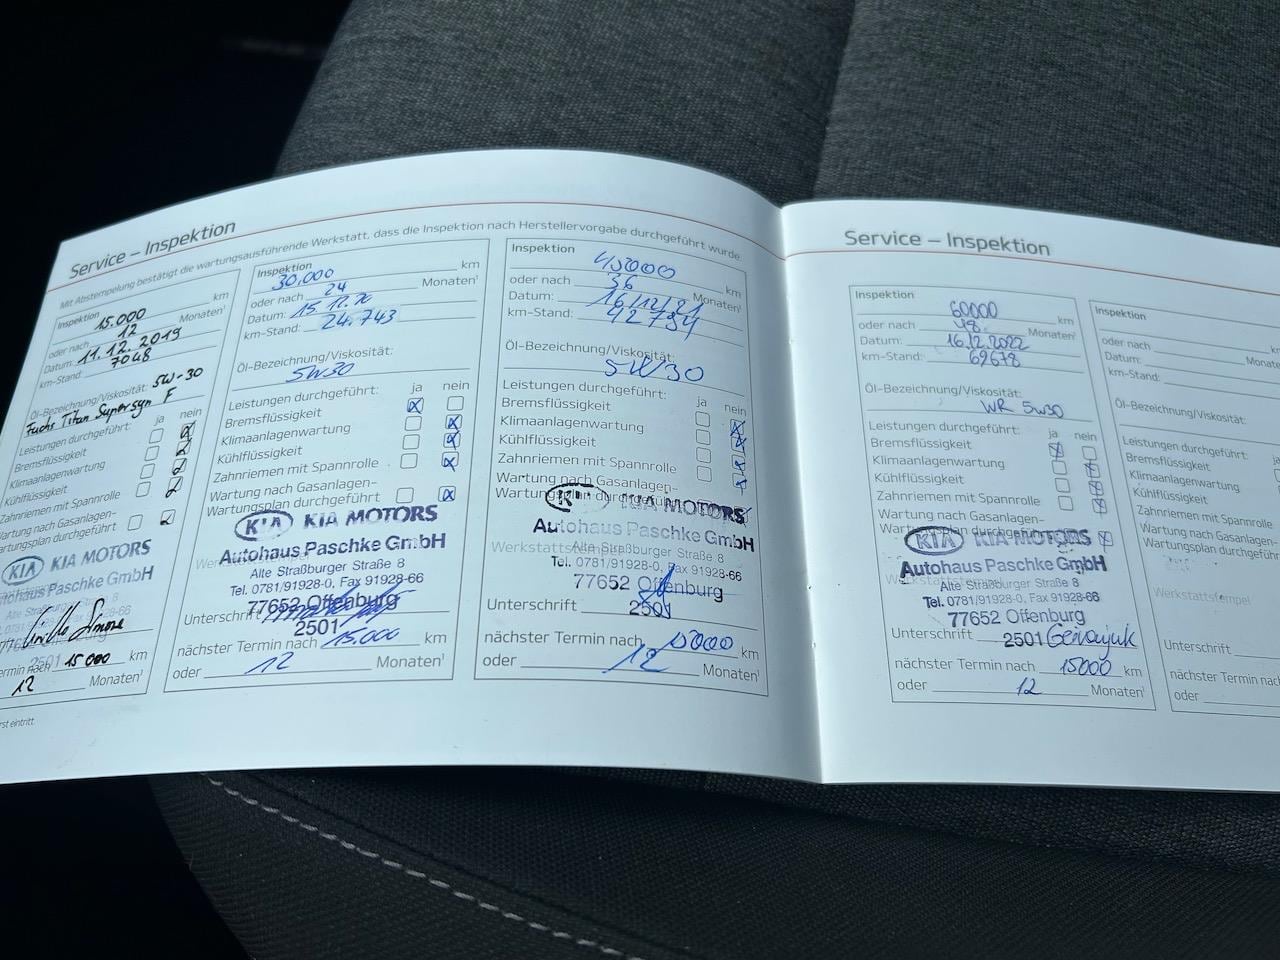 Service – Inspektion
Mit Abstempelung bestätigt die wartungsausführende Werkstatt, dass die Inspektion nach Herstellervorgabe durchgeführt wurde.
Inspektion 15.000 km
oder nach 12 Monaten¹
Datum: 11.12.2019
km-Stand: 7048
Öl-Bezeichnung/Viskosität: 5W-30
Fuchs Titan Supersyn F
Leistungen durchgeführt: ja nein
Bremsflüssigkeit
Klimaanlagenwartung
Kühlflüssigkeit
Zahnriemen mit Spannrolle
Wartung nach Gasanlagen-
Wartungsplan durchgeführt
KIA KIA MOTORS
Autohaus Paschke GmbH
Alte Straßburger Straße 8
2501
Termin nach 15 000 km
12 Monaten¹
rst eintritt.
Inspektion
30.000 km
oder nach 24 Monaten¹
Datum: 15.12.20
km-Stand: 24.743
Öl-Bezeichnung/Viskosität:
5W30
Leistungen durchgeführt: ja nein
Bremsflüssigkeit
Klimaanlagenwartung
Kühlflüssigkeit
Zahnriemen mit Spannrolle
Wartung nach Gasanlagen-
Wartungsplan durchgeführt
KIA KIA MOTORS
Autohaus Paschke GmbH
Alte Straßburger Straße 8
Tel. 0781/91928-0, Fax 91928-66
77652 Offenburg
Unterschrift
2501
nächster Termin nach 15.000 km
oder 12 Monaten¹
Inspektion 45000 km
oder nach 36 Monaten¹
Datum: 16/12/21
km-Stand: 42784
Öl-Bezeichnung/Viskosität:
5W30
Leistungen durchgeführt: ja nein
Bremsflüssigkeit
Klimaanlagenwartung
Kühlflüssigkeit
Zahnriemen mit Spannrolle
Wartung nach Gasanlagen-
Wartungsplan durchgeführt
KIA KIA MOTORS
Autohaus Paschke GmbH
Werkstattstempel
Alte Straßburger Straße 8
Tel. 0781/91928-0, Fax 91928-66
77652 Offenburg
Unterschrift 2501
nächster Termin nach 15000 km
oder 12 Monaten¹
Service – Inspektion
Inspektion 60000 km
oder nach 48 Monaten¹
Datum: 16.12.2022
km-Stand: 69678
Öl-Bezeichnung/Viskosität:
WR 5W30
Leistungen durchgeführt: ja nein
Bremsflüssigkeit
Klimaanlagenwartung
Kühlflüssigkeit
Zahnriemen mit Spannrolle
Wartung nach Gasanlagen-
Wartungsplan durchgeführt
KIA KIA MOTORS
Autohaus Paschke GmbH
Werkstattstempel
Alte Straßburger Straße 8
Tel. 0781/91928-0, Fax 91928-66
77652 Offenburg
Unterschrift 2501
nächster Termin nach 15000 km
oder 12 Monaten¹
Inspektion
oder nach Monate
Datum:
km-Stand:
Öl-Bezeichnung/Viskosität:
Leistungen durchgeführt: ja
Bremsflüssigkeit
Klimaanlagenwartung
Kühlflüssigkeit
Zahnriemen mit Spannrolle
Wartung nach Gasanlagen-
Wartungsplan durchgeführt
Werkstattstempel
Unterschrift
nächster Termin nach
oder